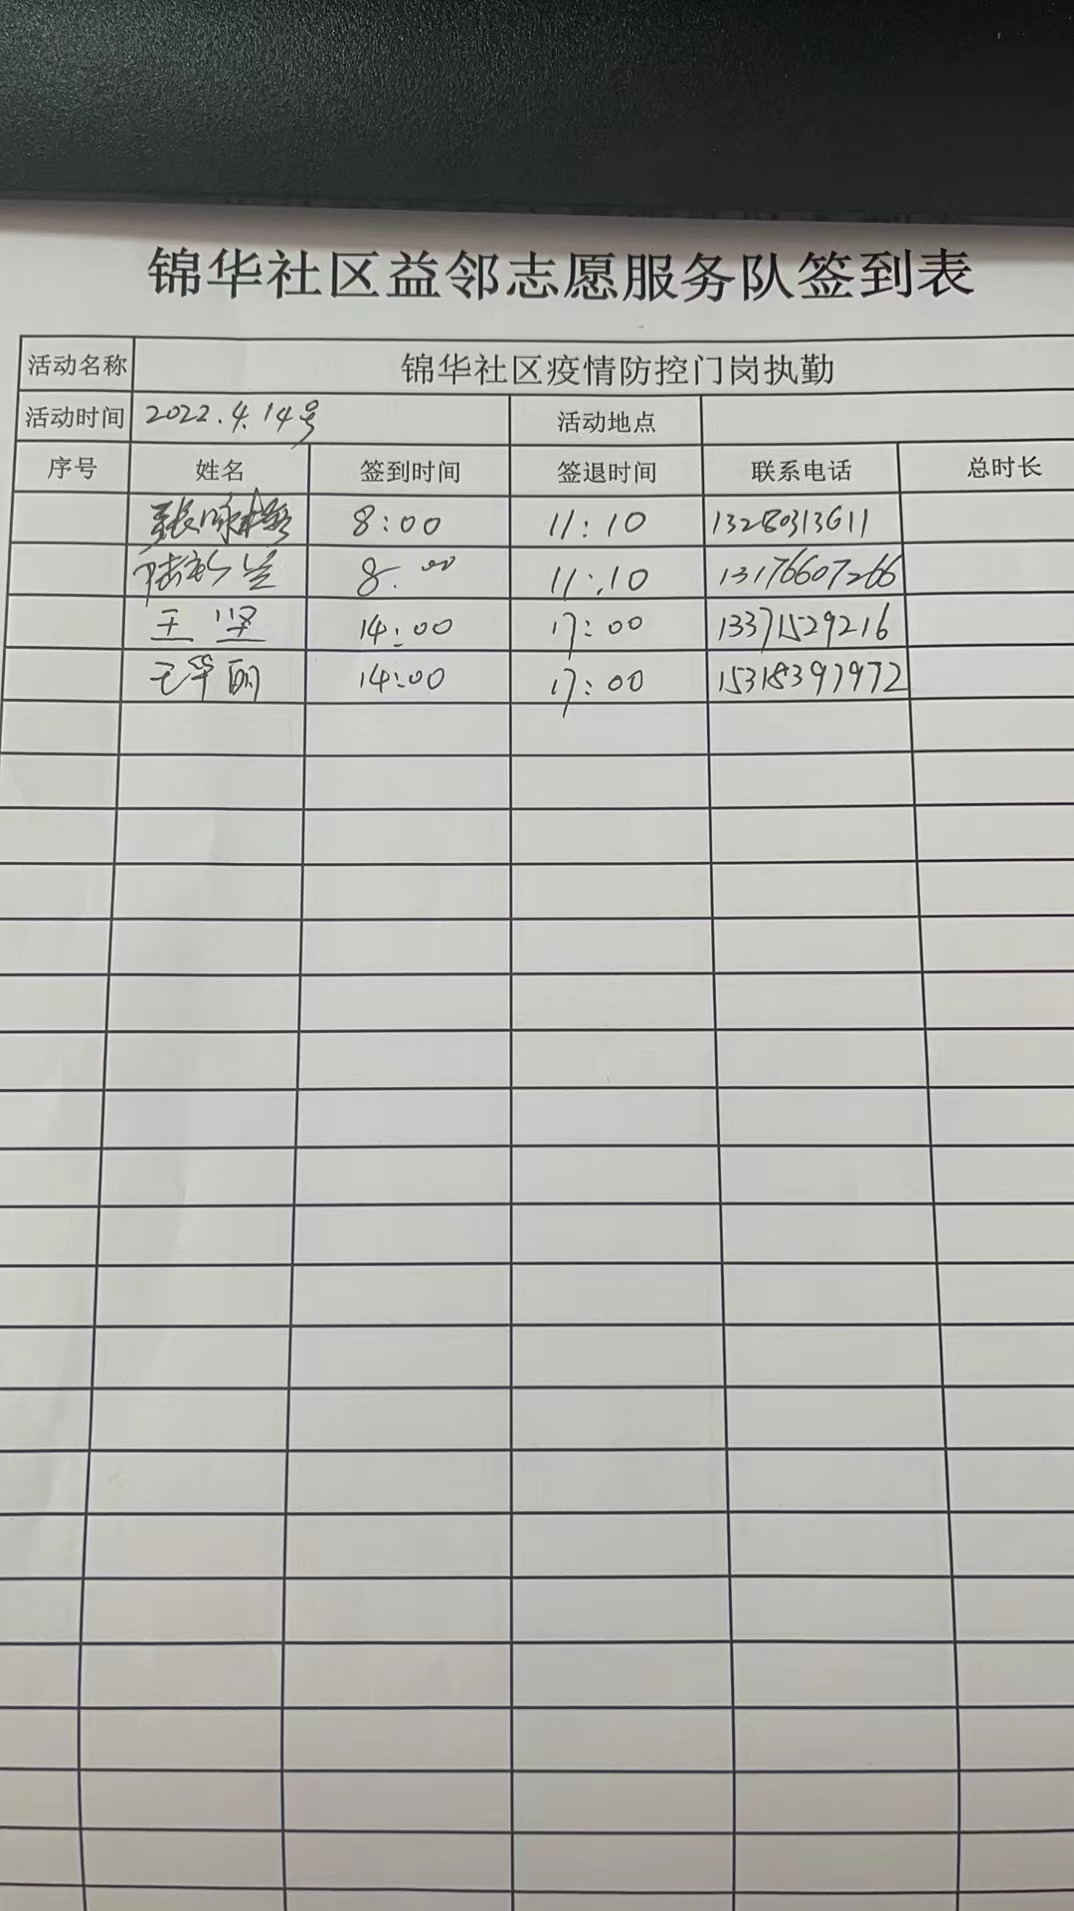 锦华社区益邻志愿服务队签到表
活动名称 锦华社区疫情防控门岗执勤
活动时间 2022.4.14号 活动地点
序号 姓名 签到时间 签退时间 联系电话 总时长
8:00 11:10 13280313611
8:00 11:10 13176607266
王坚 14:00 17:00 13371529216
王华丽 14:00 17:00 15318397972